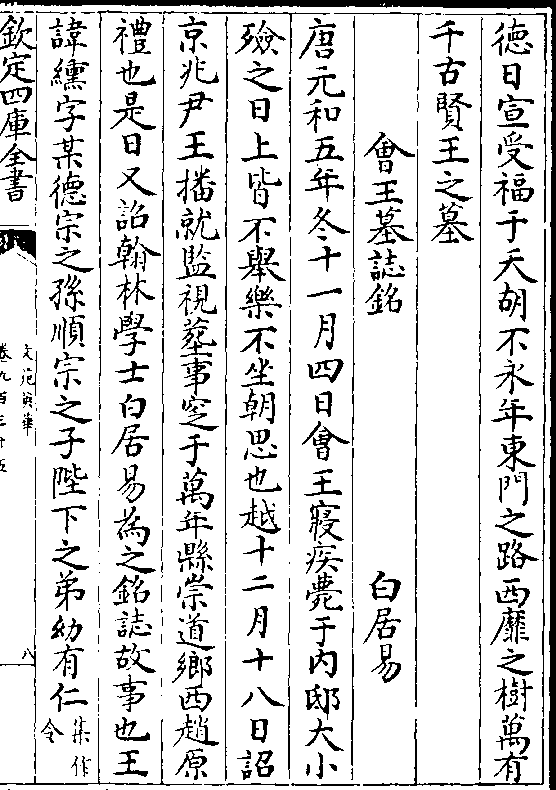 德日宣受福于天胡不永年東門之路西靡之樹萬有
千古賢王之墓
會王墓誌銘 白居易
唐元和五年冬十一月四日會王寢疾薨于内邸大小
殮之日上皆不舉樂不坐朝恩也越十二月十八日詔
京兆尹王播就監視塟事窆于萬年縣崇道鄉西趙原
禮也是日又詔翰林學士白居易為之銘誌故事也王
諱纁字某德宗之孫順宗之子陛下之弟幼有仁集作令
欽定四庫全書
文苑英華
卷九百三十五
八